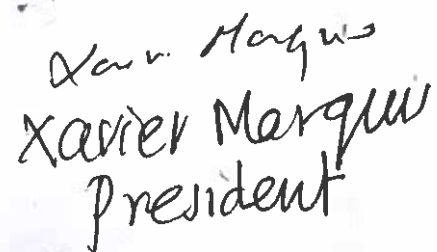 Xavier Marquis
Xavier Marquis
President